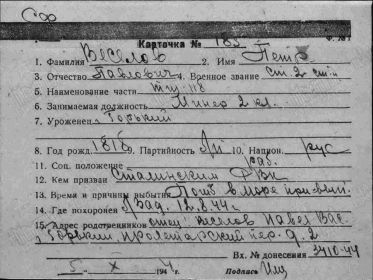 Карточка № 185
1. Фамилия Веселов 2. Имя Петр
3. Отчество Павлович 4. Военное звание ст. 2 ст-и
5. Наименование части тщ-118
6. Занимаемая должность Минер 2 кл.
7. Уроженец г. Горький
8. Год рожд. 1918 9. Партийность б/п 10. Национ. рус
11. Соц. положение раб.
12. Кем призван Сталинским РВК
13. Время и причины выбытия Погиб в море при вып.
14. Где похоронен БЗад. 12.8.44 г.
15. Адрес родственников отец Веселов Павел Вас.
г. Горький Пролетарский пер. д. 2
Вх. № донесения 3410-44
5 X 1944 г. Подпись